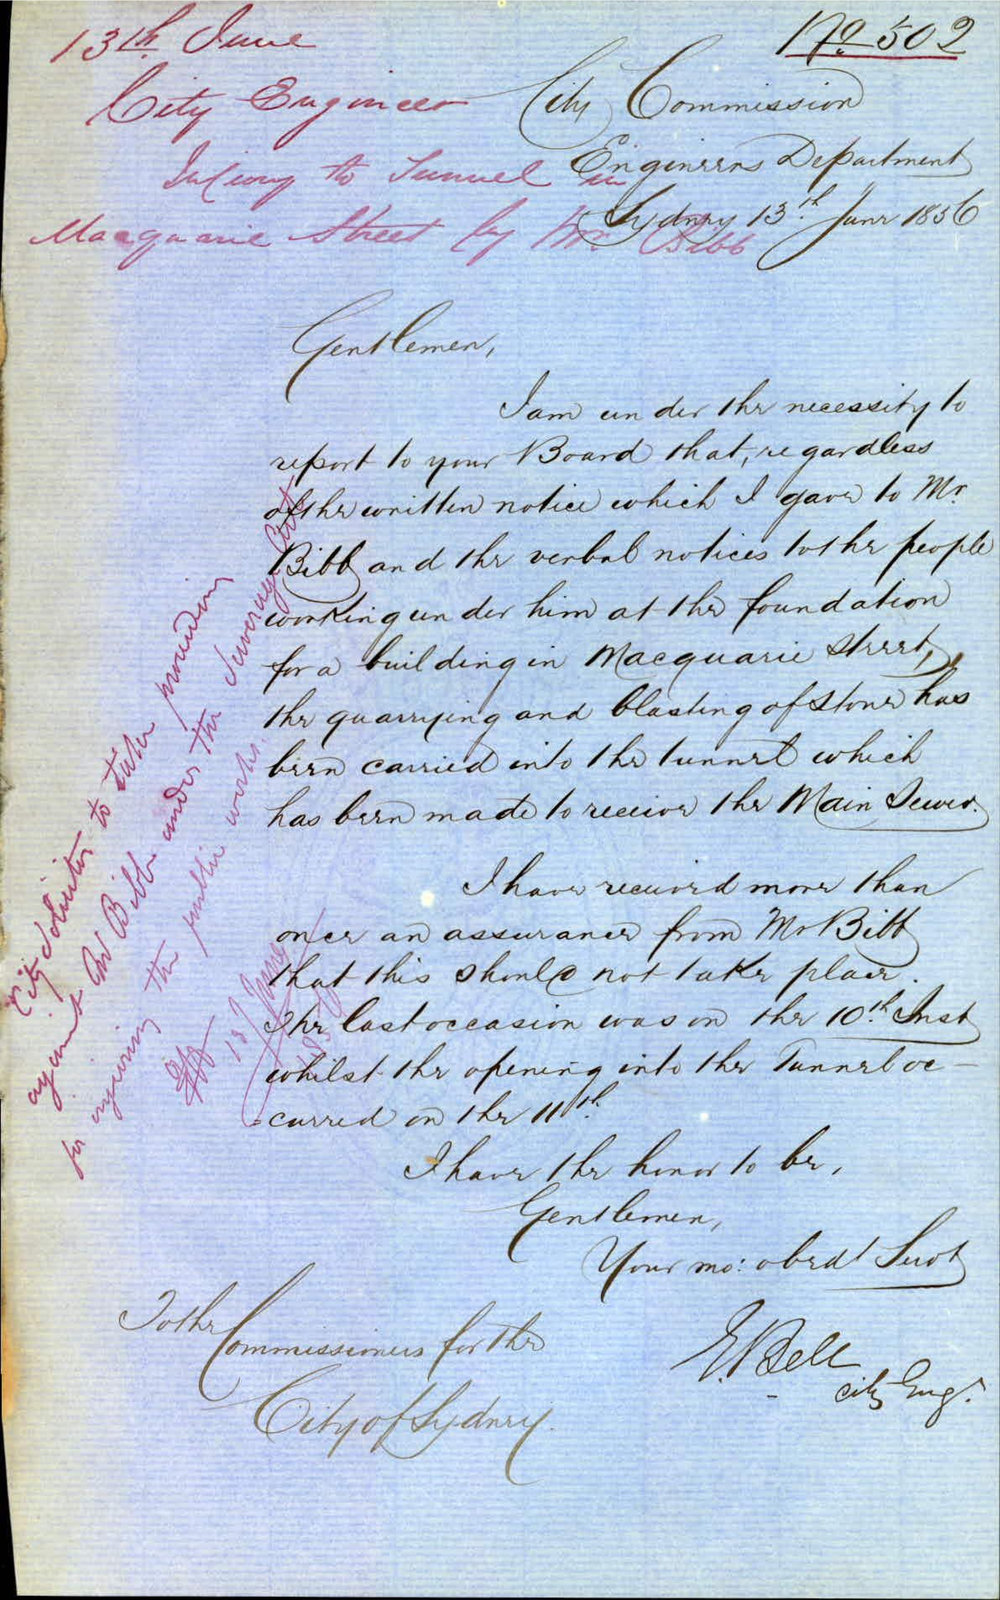 13th June
No 502
City Engineer
Injury to Tunnel in
Macquarie Street by Mr. Bibb
City Commission
Engineers Department
Sydney 13th June 1856
Gentlemen,
I am under the necessity to
report to your Board that, regardless
of the written notice which I gave to Mr.
Bibb and the verbal notices to the people
working under him at the foundation
for a building in Macquarie Street,
the quarrying and blasting of stone has
been carried into the tunnel which
has been made to receive the Main Sewer.
I have received more than
once an assurance from Mr Bibb
that this should not take place.
The last occasion was on the 10th Inst
whilst the opening into the Tunnel oc-
-curred on the 11th.
I have the honor to be,
Gentlemen,
Your mo: obedt Servt
E. Bell
City Engr.
To the Commissioners for the
City of Sydney.
City Solicitor to take proceedings
against Mr Bibb under the Sewerage Act
for injuring the public works.
13 June